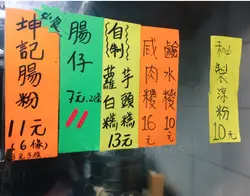 坤記腸粉
11元
(6條)
腸仔
7元,2條
(自制)
蘿白糕
芋頭糕
13元
咸肉糭
16元
鹼水糭
10元
秘製凉粉
10元